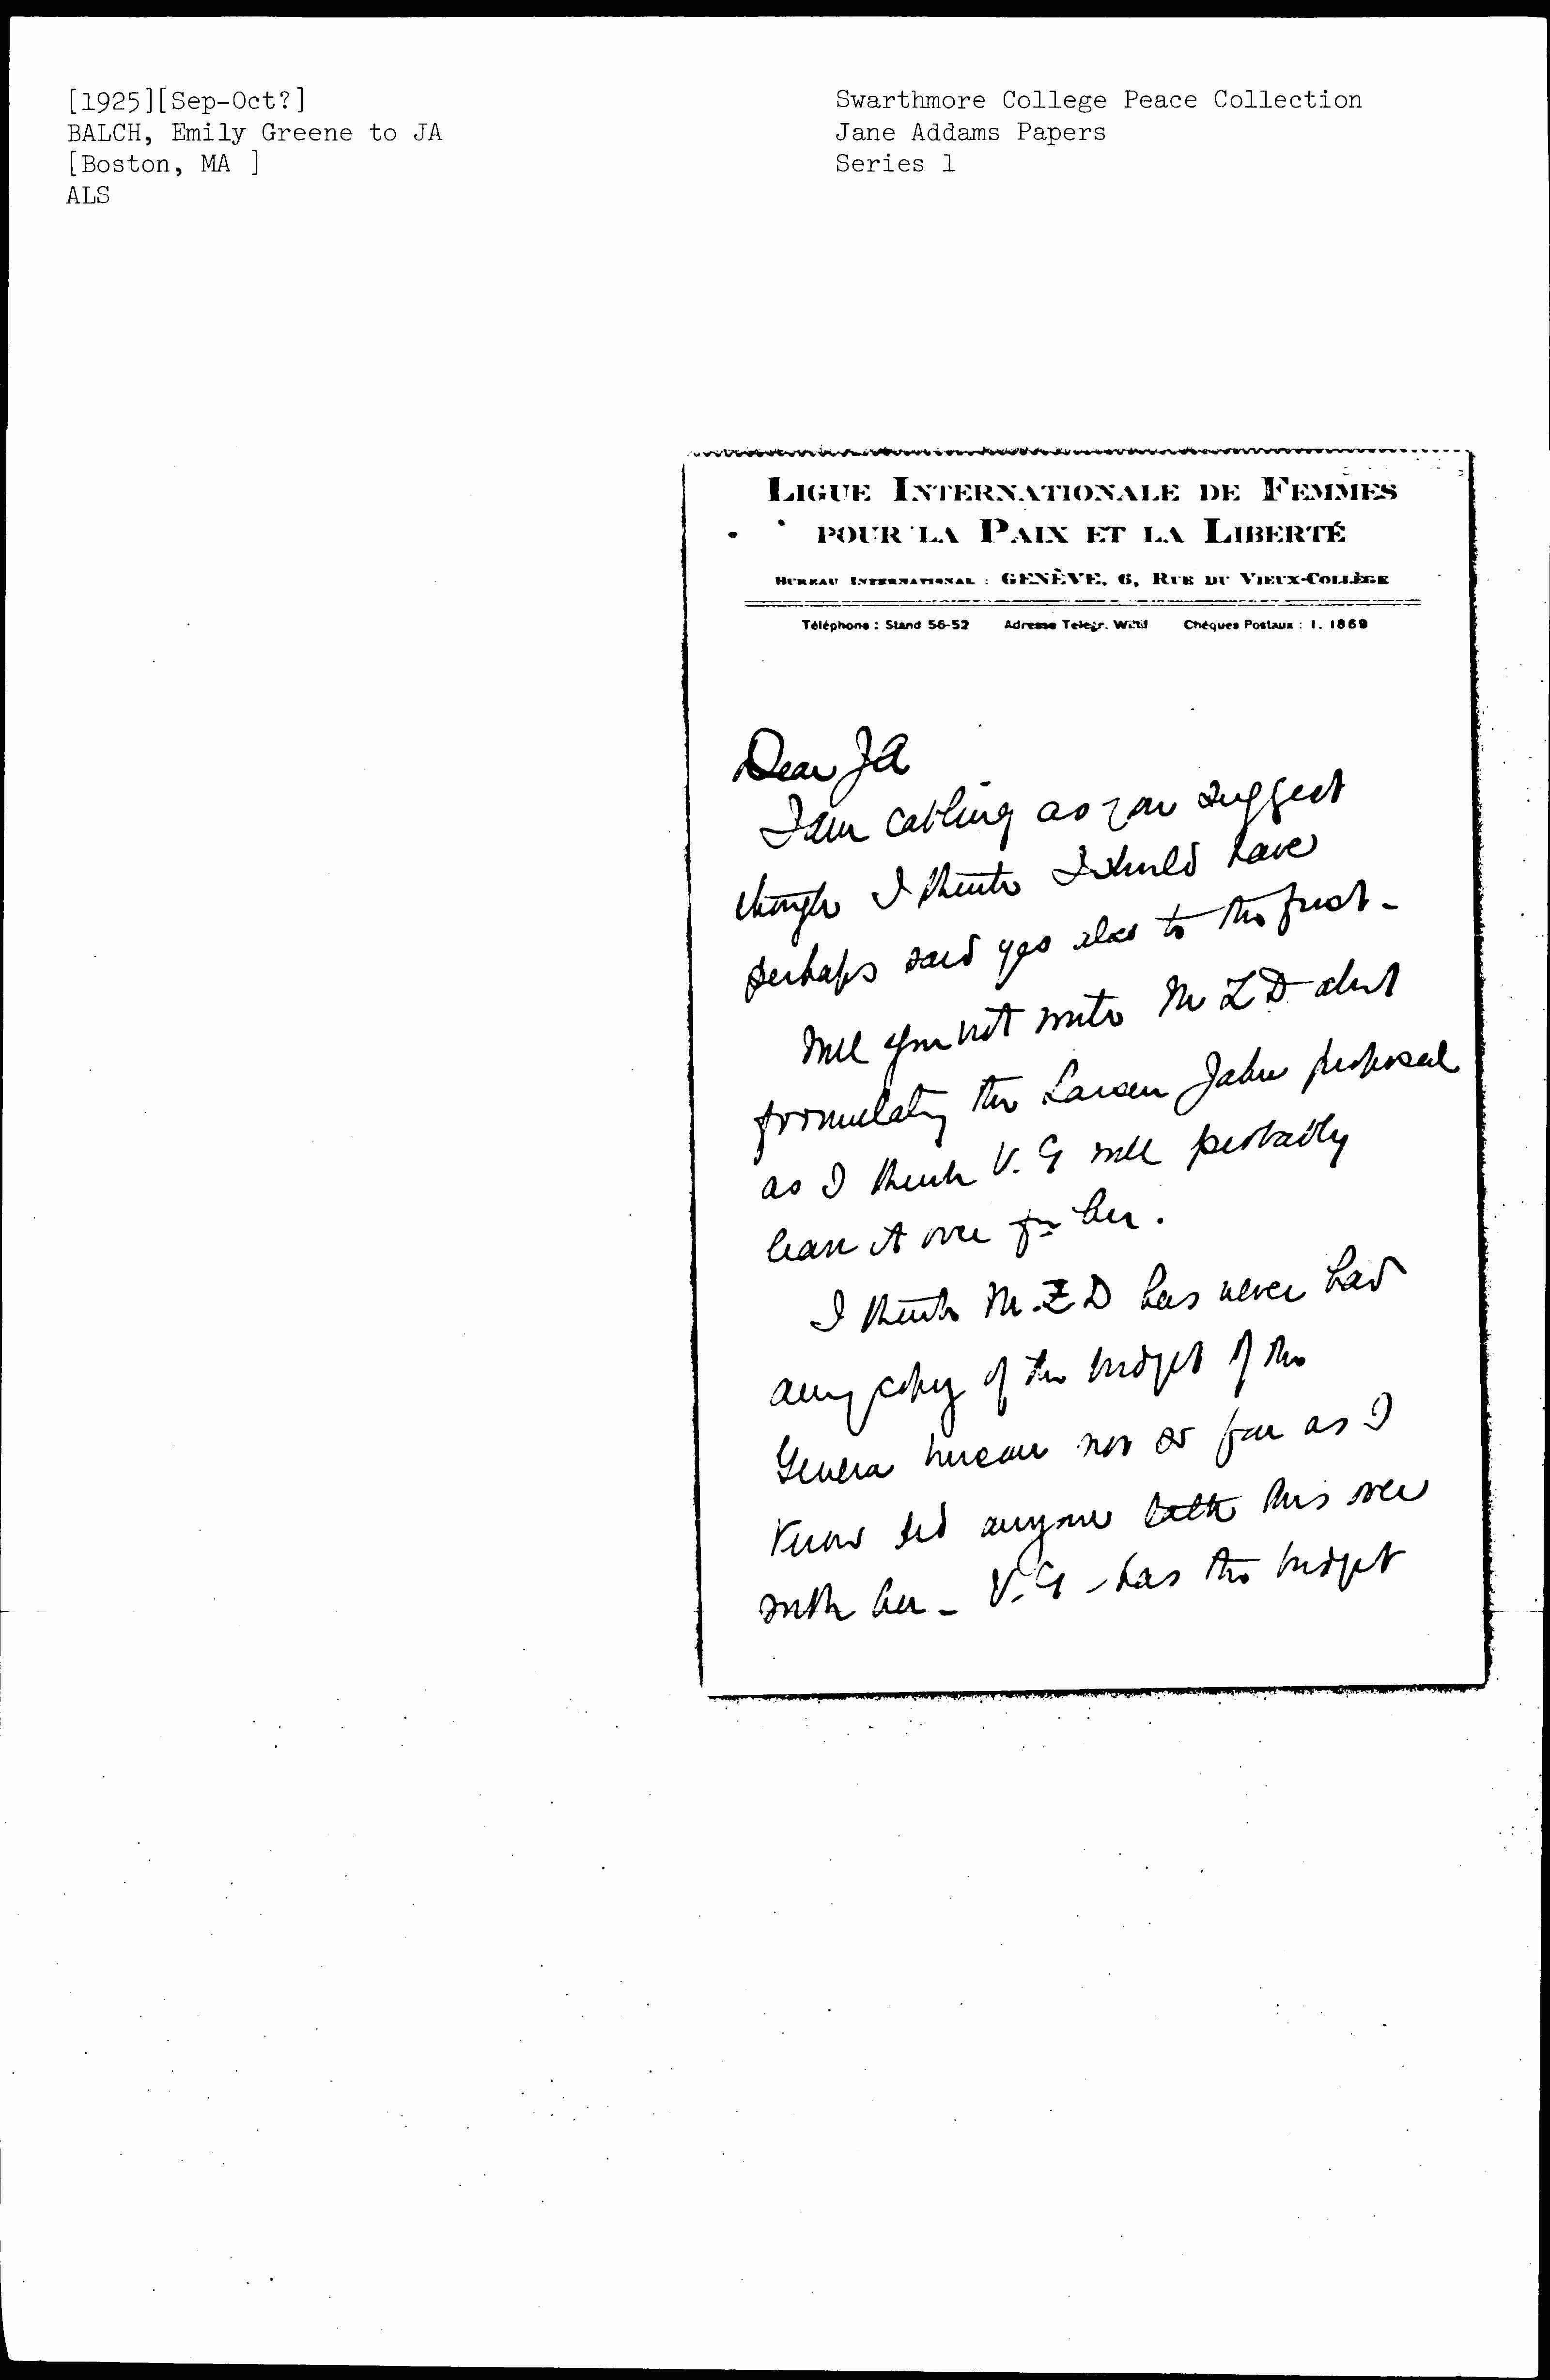 [1925][Sep-Oct?]
BALCH, Emily Greene to JA
[Boston, MA ]
ALS
Swarthmore College Peace Collection
Jane Addams Papers
Series 1
LIGUE INTERNATIONALE DE FEMMES
POUR LA PAIX ET LA LIBERTÉ
BUREAU INTERNATIONAL : GENÈVE, 6, RUE DU VIEUX-COLLÈGE
Téléphone : Stand 56-52 Adresse Telegr. Willif Chèques Postaux : I. 1869
Dear JA
I am cabling as you suggest
though I think I should have
perhaps said yes also to the first -
Will you not write M Z D about
formulating the Larsen Jahn proposal
as I think V. G will probably
leave it over for her.
I think M. Z D has never had
any copy of the budget of the
Geneva bureau nor so far as I
know did anyone talk this over
with her - V. G - has the budget